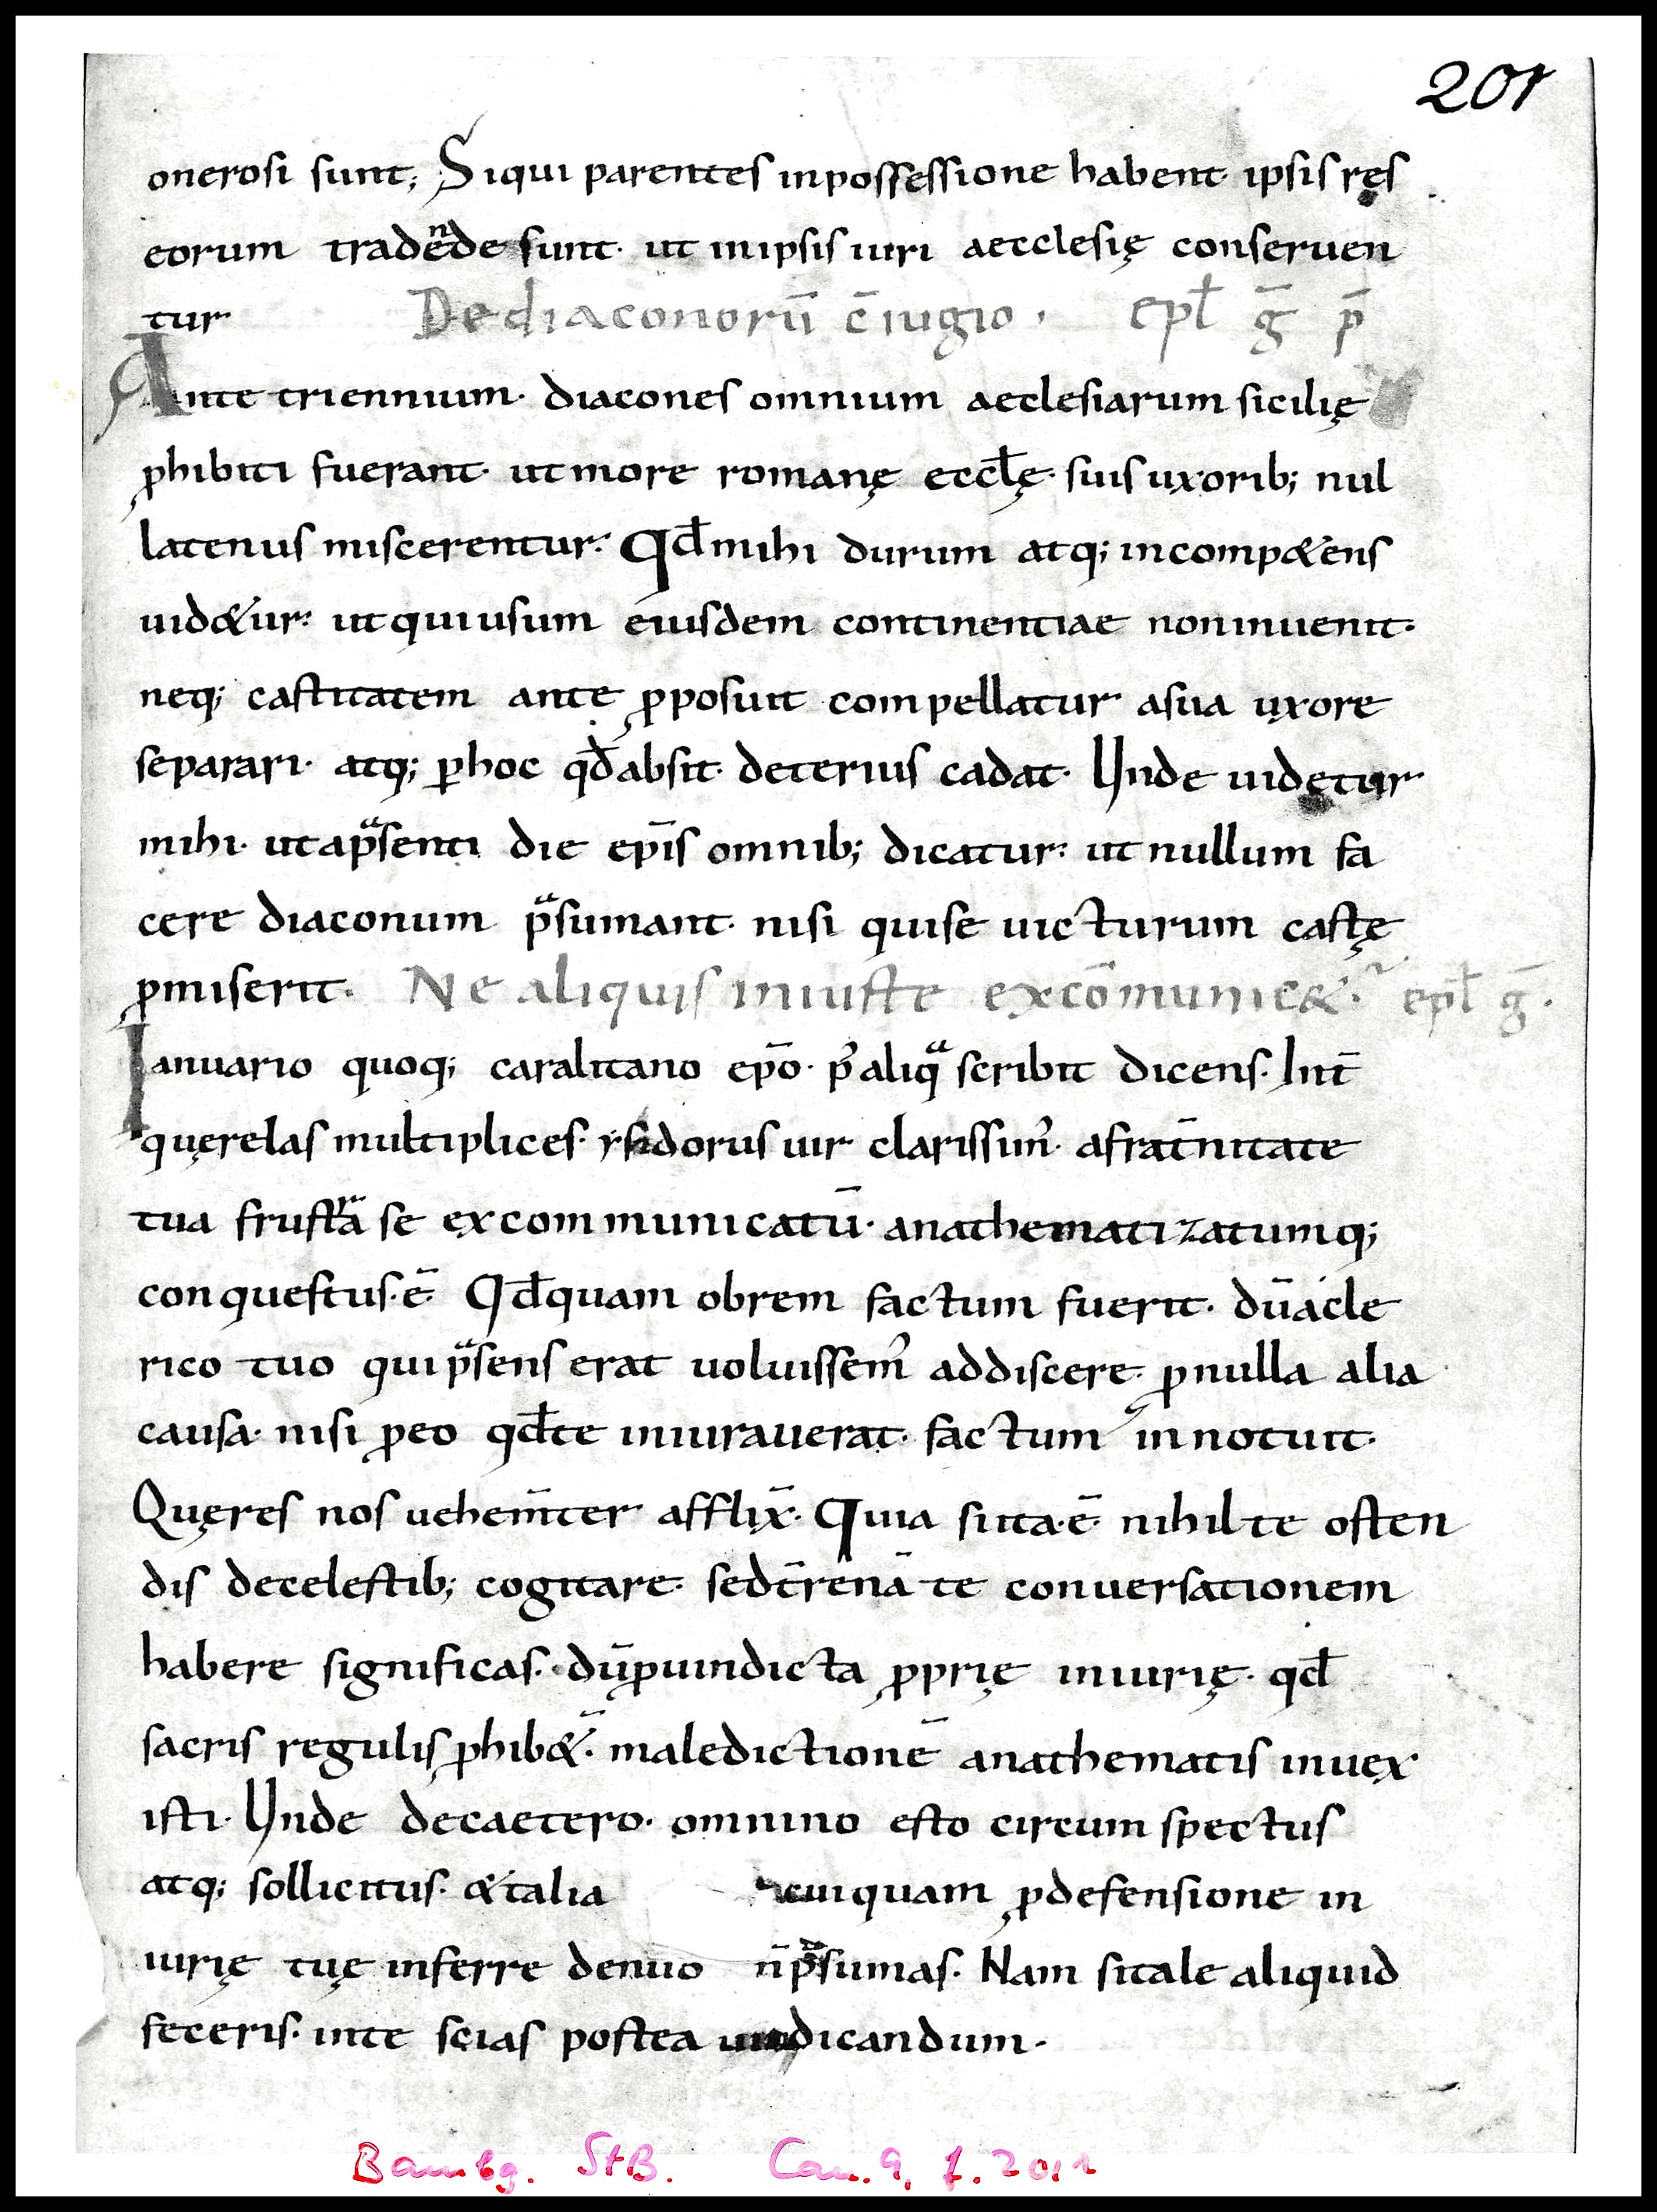 201
onerosi sunt; Siqui parentes inpossessione habent ipsis ręs
eorum tradende sunt· ut inipsis iuri aecclesię conseruen
tur Dediaconorū c̄iugio· epl̄ ḡ p̄
Ante triennium· diacones omnium aecclesiarum sicilię
ꝓhibiti fuerant· ut more romanę eccl̄ę· suis uxorib; nul
latenus miscerentur· Qd̄ mihi durum atq; incomp&ens
uid&ur· ut qui usum eiusdem continentiae non inuenit·
neq; castitatem ante ꝓposuit compellatur asua uxore
separari· atq; ꝑhoc qd̄ absit· deterius cadat· Unde uidetur
mihi· ut apͣsenti die ep̄is omnib; dicatur· ut nullum fa
cere diaconum pͣsumant· nisi quise uicturum castę
ꝓmiserit· Ne aliquis iniuste excōmunic&ur· epl̄ ḡ·
Ianuario quoq; caralitano ep̄o· p᷒ aliqͣ scribit dicens· Int̄
quęrelas multiplices· ysidorus uir clarissim᷒· afrat̄nitate
tua frustra se excommunicatū· anathematizatumq;
conquestus·ē· Qd̄ quam obrem factum fuerit· dū acle
rico tuo qui pͣsens erat uoluissem᷒ addiscere· ꝓnulla alia
causa· nisi ꝓeo qd̄ te iniurauerat· factum innotuit·
Quęres nos uehem̄ter afflix̄· Quia si ita·ē· nihil te osten
dis decelestib; cogitare· sed t̄renā te conuersationem
habere significas· dū ꝓuindicta ꝓprię iniurię· qd̄
sacris regulis ꝓhib&ur· maledictionē anathematis inuex
isti· Unde decaetero· omnino esto circumspectus
atq; sollicitus· & talia cuiquam ꝓdefensione in
iurię tuę inferre denuo n̄ pͣsumas· Nam si tale aliquid
feceris· inte scias postea uindicandum·
Bambg. StB. Can. 9, f. 201r